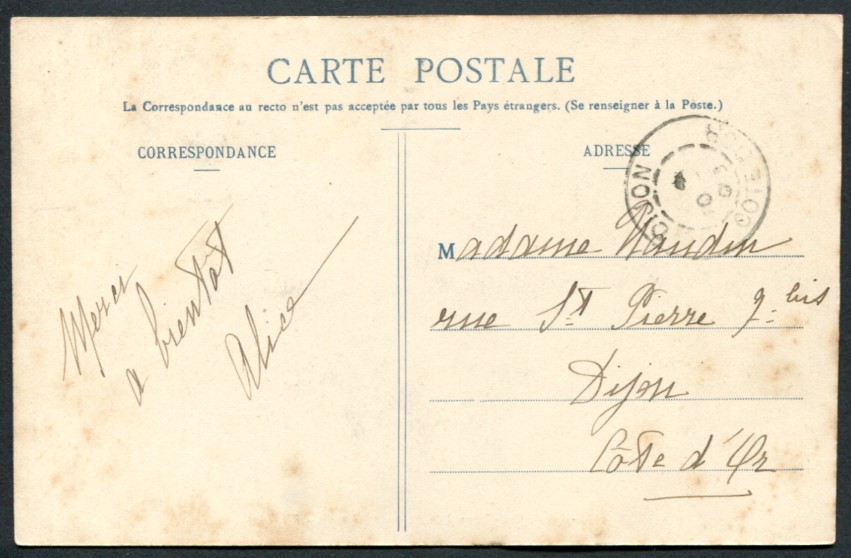 CARTE POSTALE
La Correspondance au recto n'est pas acceptée par tous les Pays étrangers. (Se renseigner à la Poste.)
CORRESPONDANCE
Merci
a bientôt
Alice
ADRESSE
DIJON
COTE D'OR
Madame Naudin
rue St Pierre 9 bis
Dijon
Côte d'Or